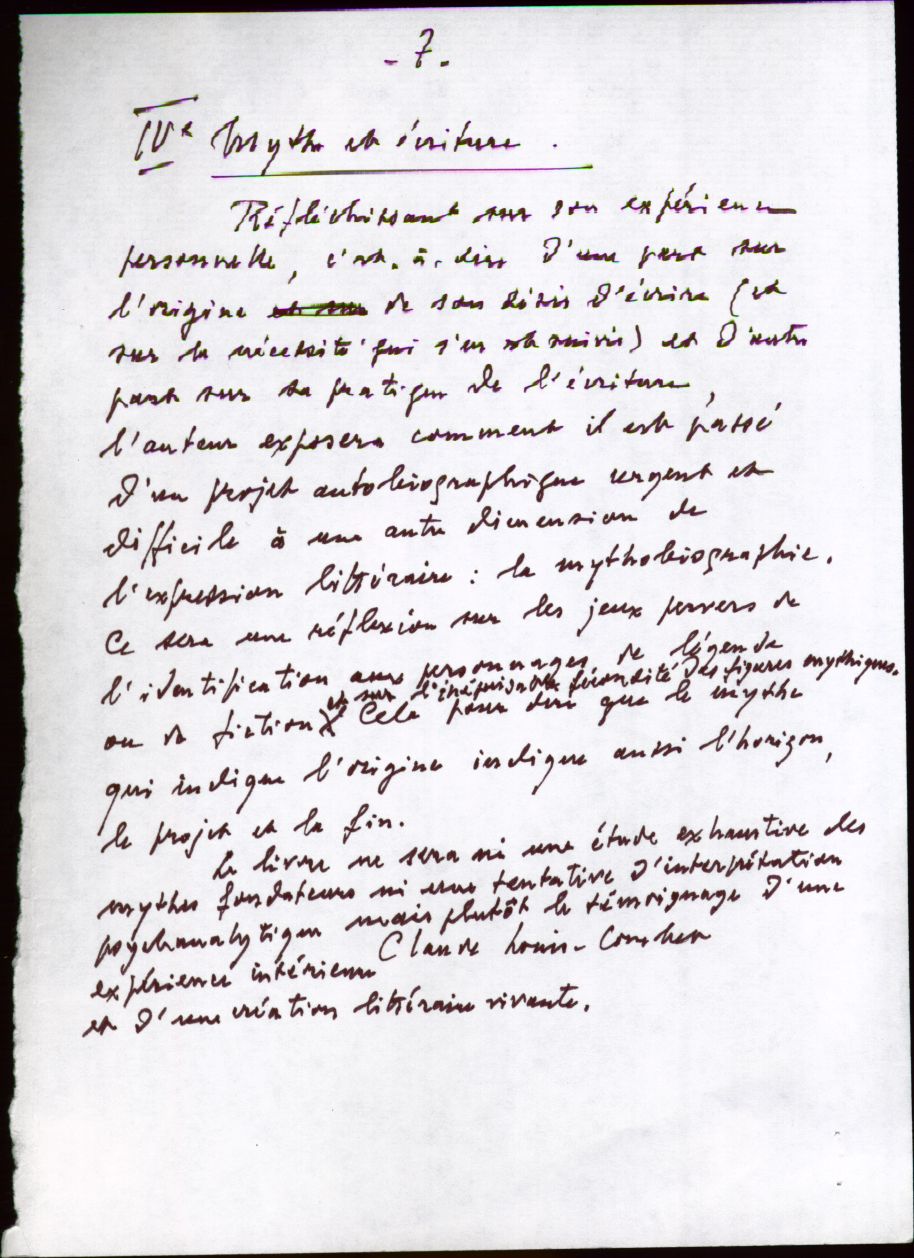 - 7 -
IVe Mythe et écriture.
Réfléchissant sur son expérience
personnelle, c'est-à-dire d'une part sur
l'origine et sur de son désir d'écrire (et
sur la nécessité qui s'en est suivie) et d'autre
part sur sa pratique de l'écriture,
l'auteur exposera comment il est passé
d'un projet autobiographique urgent et
difficile à une autre dimension de
l'expression littéraire : la mythobiographie.
Ce sera une réflexion sur les jeux pervers de
l'identification aux personnages de légende
ou de fiction et sur l'inépuisable fécondité des figures mythiques.
Cela pour dire que le mythe
qui indique l'origine indique aussi l'horizon,
le projet et la fin.
Le livre ne sera ni une étude exhaustive des
mythes fondateurs ni une tentative d'interprétation
psychanalytique mais plutôt le témoignage d'une
expérience intérieure
et d'une création littéraire vivante.
Claude Louis-Combet